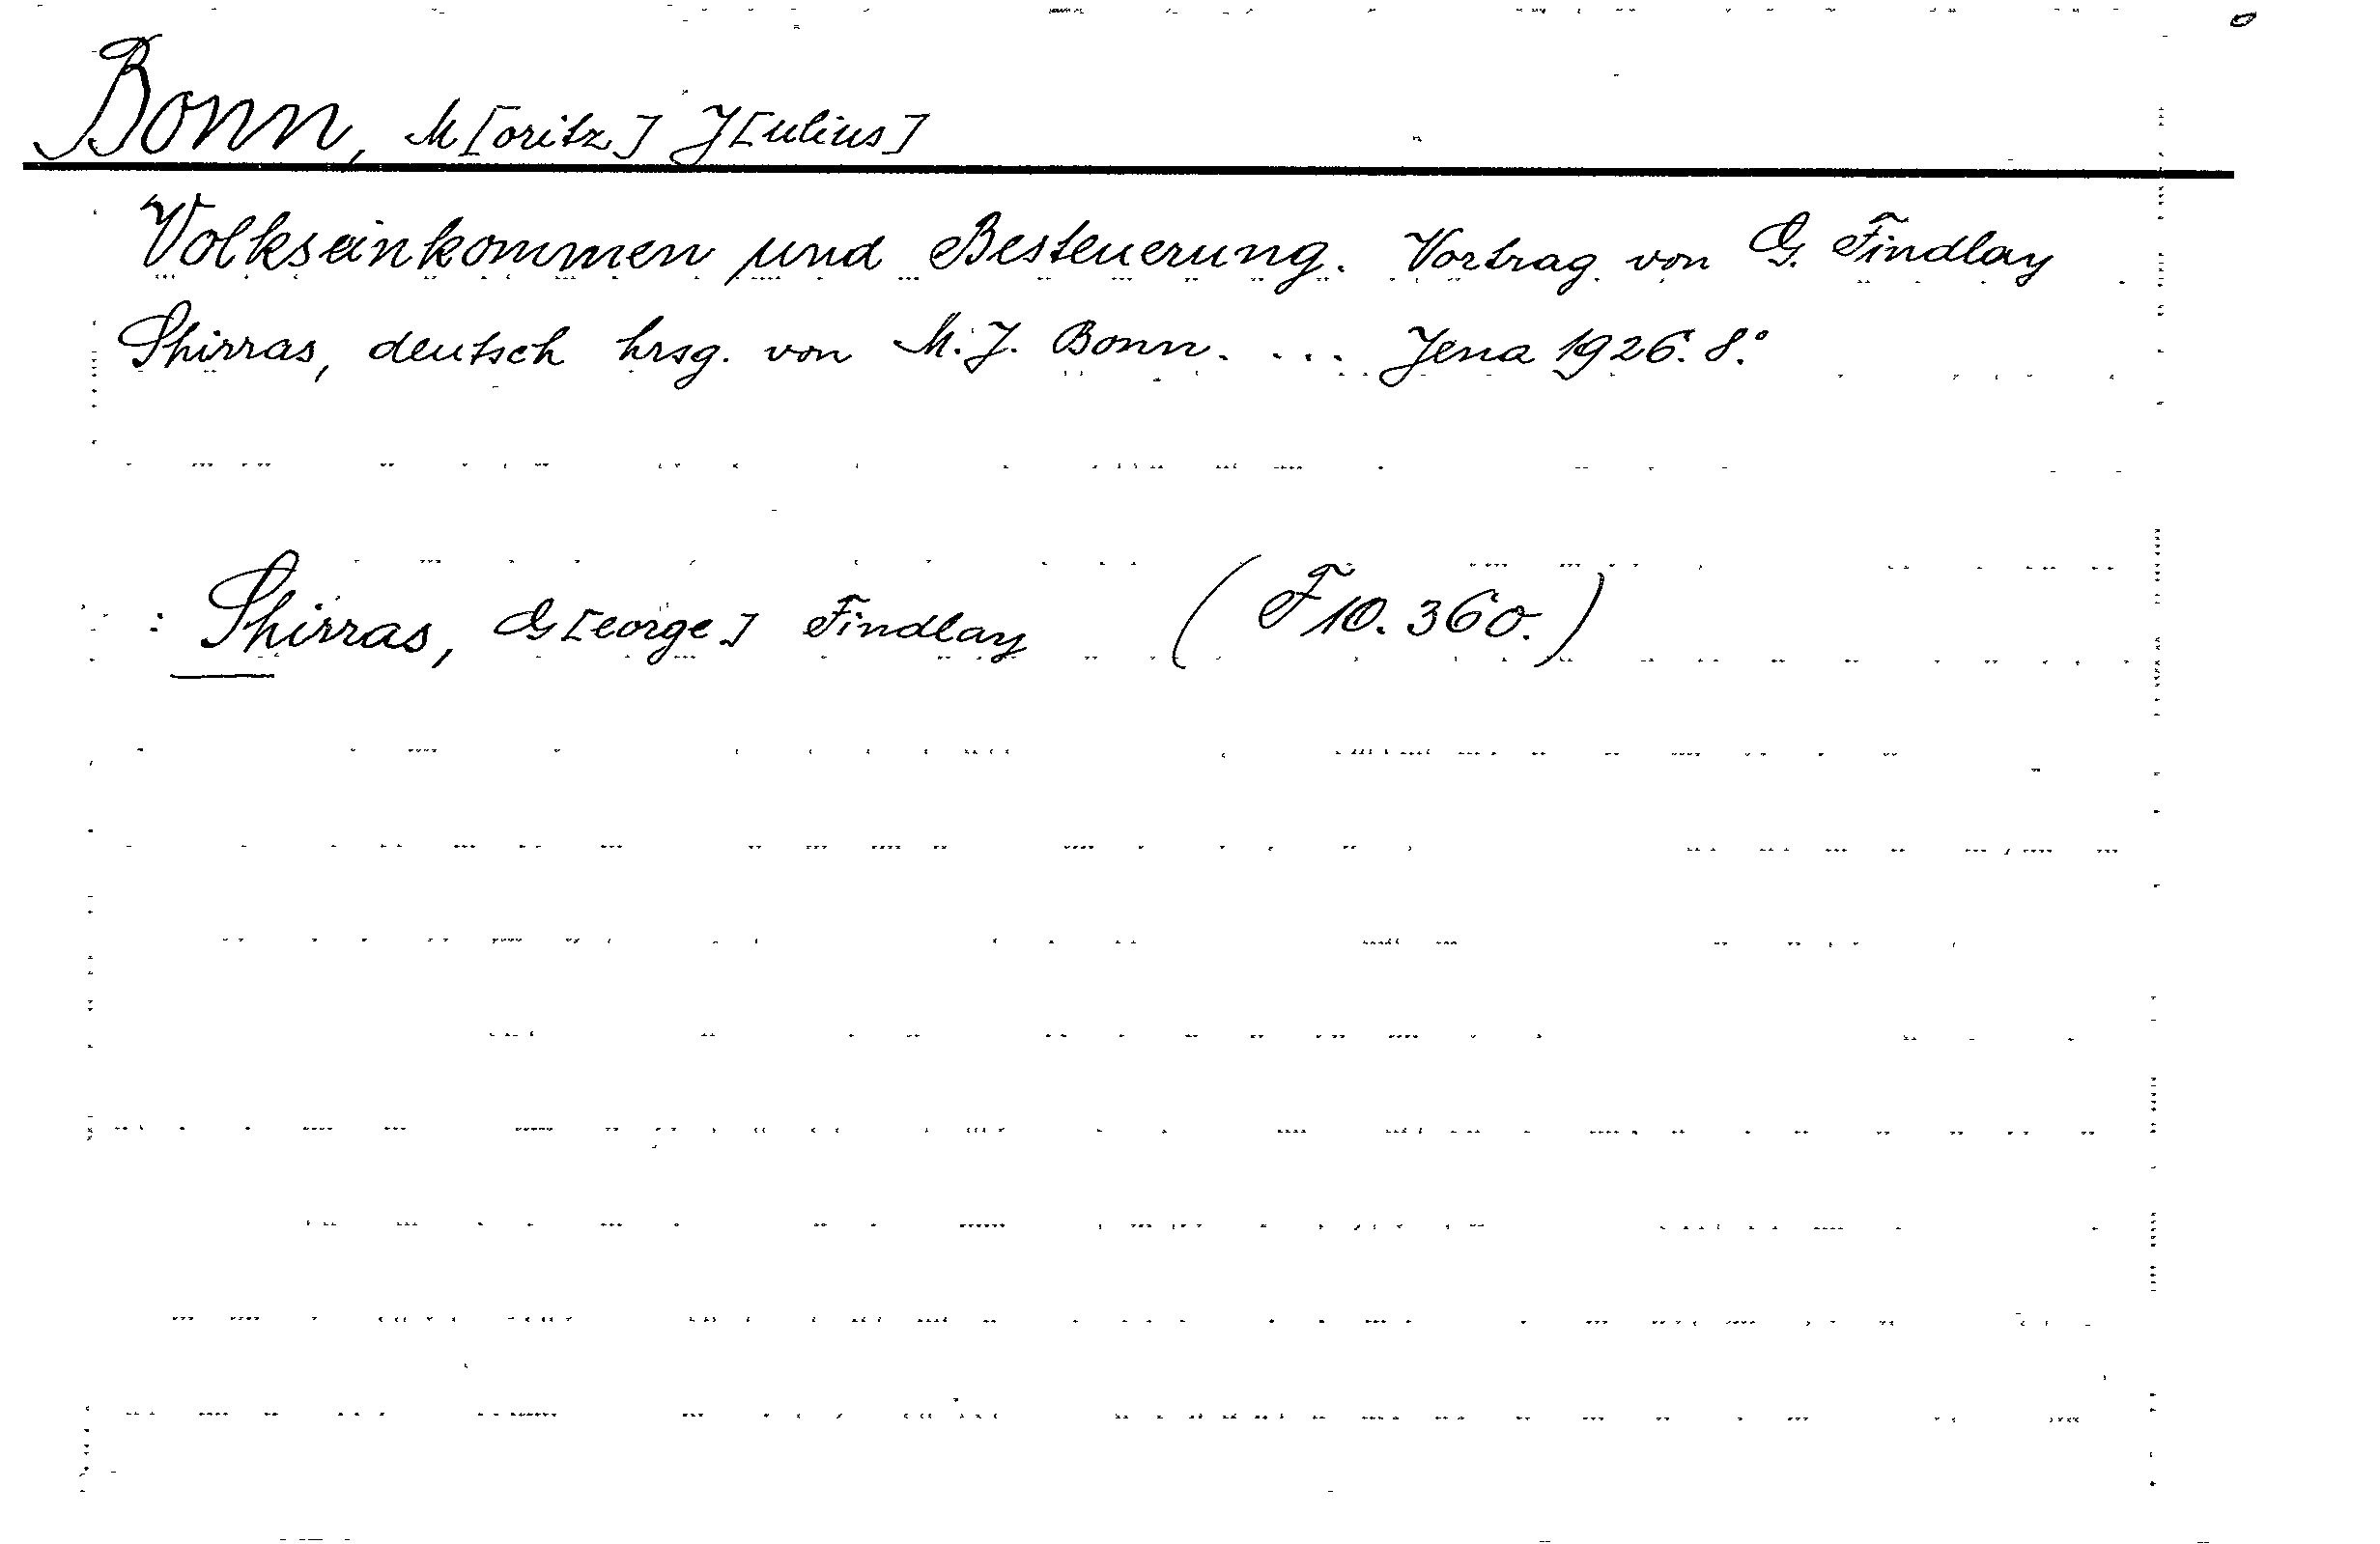 Bonn, M[oritz] J[ulius]
Volkseinkommen und Besteuerung. Vortrag von G. Findlay
Shirras, deutsch hrsg. von M. J. Bonn. ... Jena 1926. 8.°
: Shirras, G[eorge] Findlay (F 10. 360.)